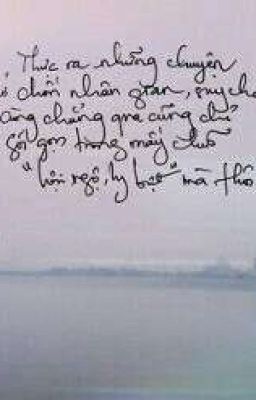 Thực ra những chuyện
ở chốn nhân gian, suy cho
cùng chẳng qua cũng chỉ
gói gọn trong mấy chữ
"hội ngộ, ly biệt" mà thô